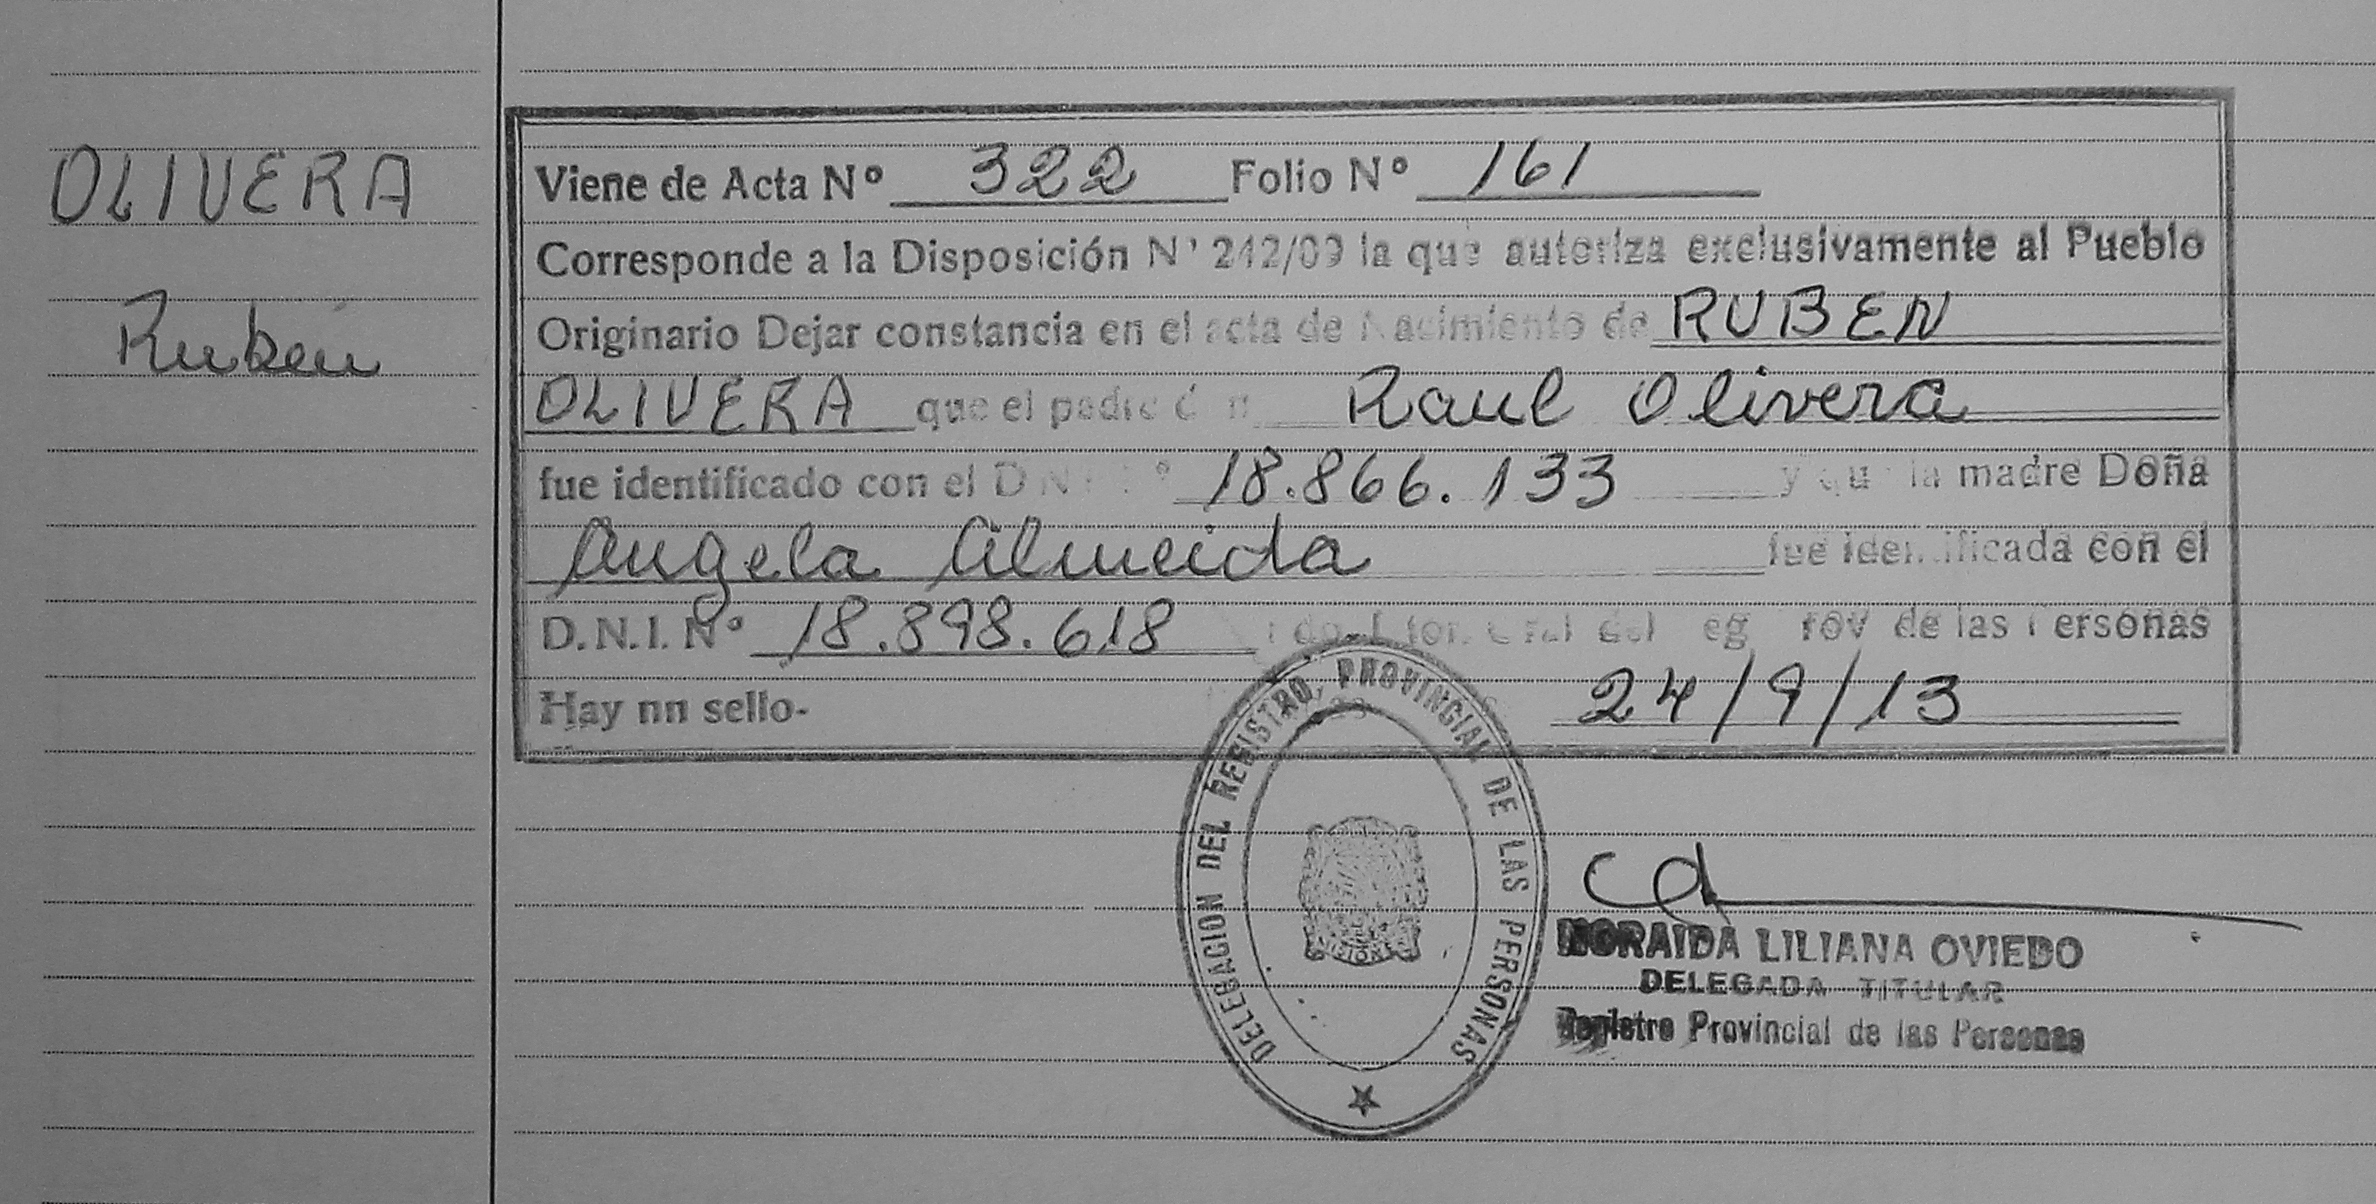 OLIVERA
Ruben
Viene de Acta Nº 322 Folio Nº 161
Corresponde a la Disposición Nº 242/09 la que autoriza exclusivamente al Pueblo
Originario Dejar constancia en el acta de Nacimiento de RUBEN
OLIVERA que el padre Raul Olivera
fue identificado con el D N 18.866.133 y que la madre Doña
Angela Almeida fue identificada con el
D.N.I. Nº 18.898.618 de las Personas
Hay nn sello- 24/9/13
DELEGACION DEL REGISTRO PROVINCIAL DE LAS PERSONAS
LILIANA OVIEDO
DELEGADA TITULAR
Registro Provincial de las Personas